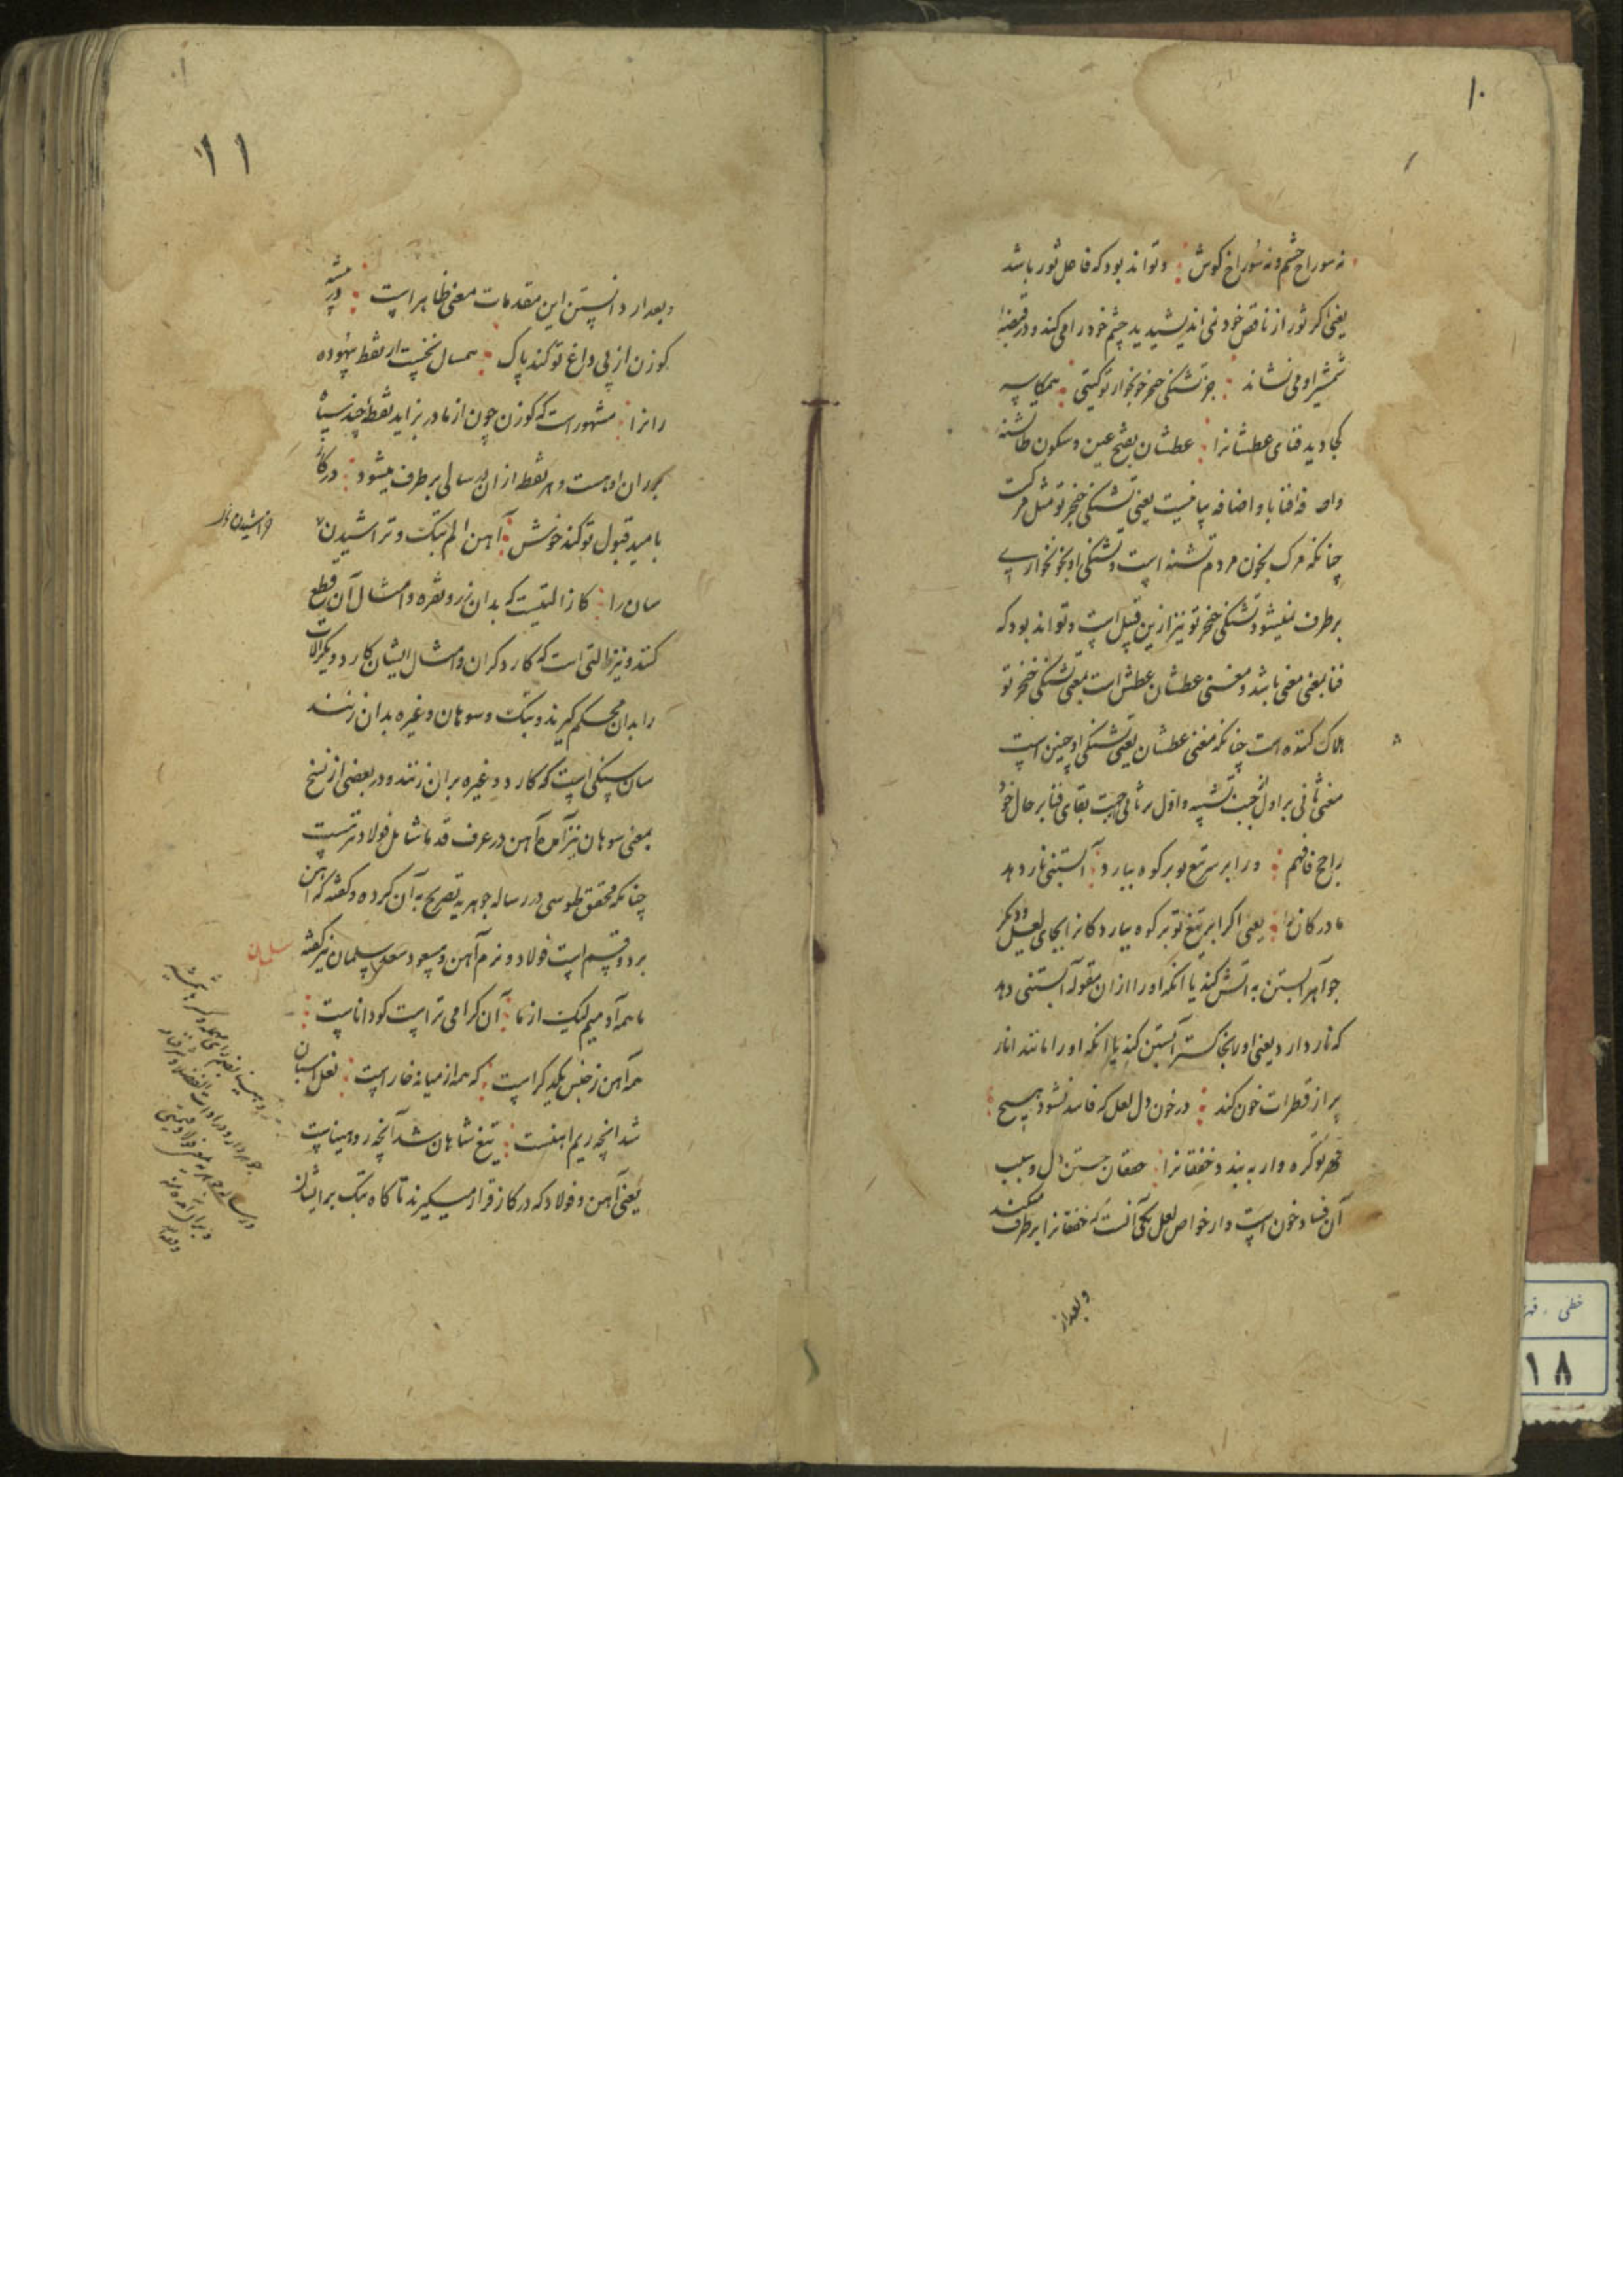 ۱۰
نه سوراخ چشم و نه سوراخ کوش وتواند بود که فاعل ثور باشد
یعنی اکر ثور از ناقص خود نمی اندیشید ید چشم خود را می کند و در قبضهٔ
شمشیر او می نشاند جز تشنکی خنجر خونخوار تو کیتی همکاسه
کجا دید فنای عطشانرا عطشان بفتح عین و سکون طا تشنه
واضافه بیانیست یعنی تشنکی خنجر تو مثل مرکست
چنانکه مرک بخون مردم تشنه است و تشنکی او بخونخواری
برطرف نمیشود تشنکی خنجر تو نیز ازین قبیل است و تواند بود که
فنا بمعنی مفنی باشد و معنی عطشان عطش است یعنی تشنکی خنجر تو
هلاک کننده است چنانکه مفنی عطشان یعنی تشنکی او چنین است
معنی ثانی بر اول بجهت تشبیه و اول بر ثانی جهت بقای فنا بر حال خود
راجح فافهم ور ابر سر تیغ تو بر کوه ببارد آبستنی نار دهد
مادر کانرا یعنی اکر ابر تیغ تو بر کوه ببارد کانرا بجای لعل و دیکر
جواهر آبستن به اتش کند یا انکه او را از ان مقوله آبستنی دهد
که نار دارد یعنی او را بخاکستر آبستن کند یا انکه او را مانند انار
پر از قطرات خون کند در خون دل لعل که فاسد نشود هیچ
قهر تو کره وار ببندد خفقانرا خفقان جستن دل و سبب
آن فساد خون است و از خواص لعل یکی آنست که خفقانرا برطرف میکند
وبعداز
۱۱
وبعد از دانستن این مقدمات معنی ظاهر است در بیشه
کوزن از پی داغ تو کند پاک همسال نخست از نقط بیهوده
رانرا مشهور است که کوزن چون از مادر بزاید نقطه چند سیاه
بر ران او هست و هر نقطه از ان هر سالی برطرف میشود در کاز
بامید قبول تو کند خوش آهن الم پتک و تراشیدن
سان را کاز التیست که بدان زر و نقره و امثال آن قطع
کنند و نیز التی است که کاردکران و امثال ایشان کارد و دیکر الات
را بدان محکم کیرند و پتک و سوهان و غیره بدان زنند
سان سنکی است که کارد و غیره بران زنند و در بعضی از نسخ
بمعنی سوهان نیز آمده آهن در عرف قدما شامل فولاد و نرمست
چنانکه محقق طوسی در رساله جوهریه تصریح به آن کرده و کفته که اهن
بر دو قسم است فولاد و نرم آهن و مسعود سعد سلمان نیز کفته
ما همه آدمیم لیک از ما آن کرامی تر است کو داناست
همه آهن ز جنس یکدیکر است که همه از میانه خار است نعل اسبان
شد انچه ریم اهنست تیغ شاهان شد آنچه رو میناست
یعنی آهن و فولاد که در کاز قرار میکیرند تا کاه پتک بر ایشان
سلمان
خطی
۱۸